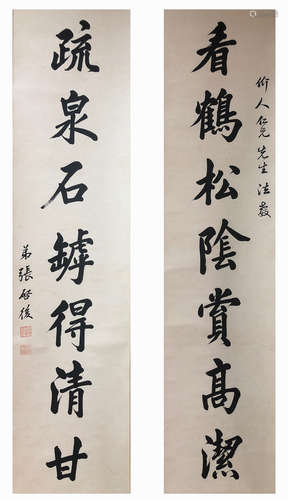 价人仁兄先生法教
看鶴松陰賞高潔
疏泉石罅得清甘
弟張啓後